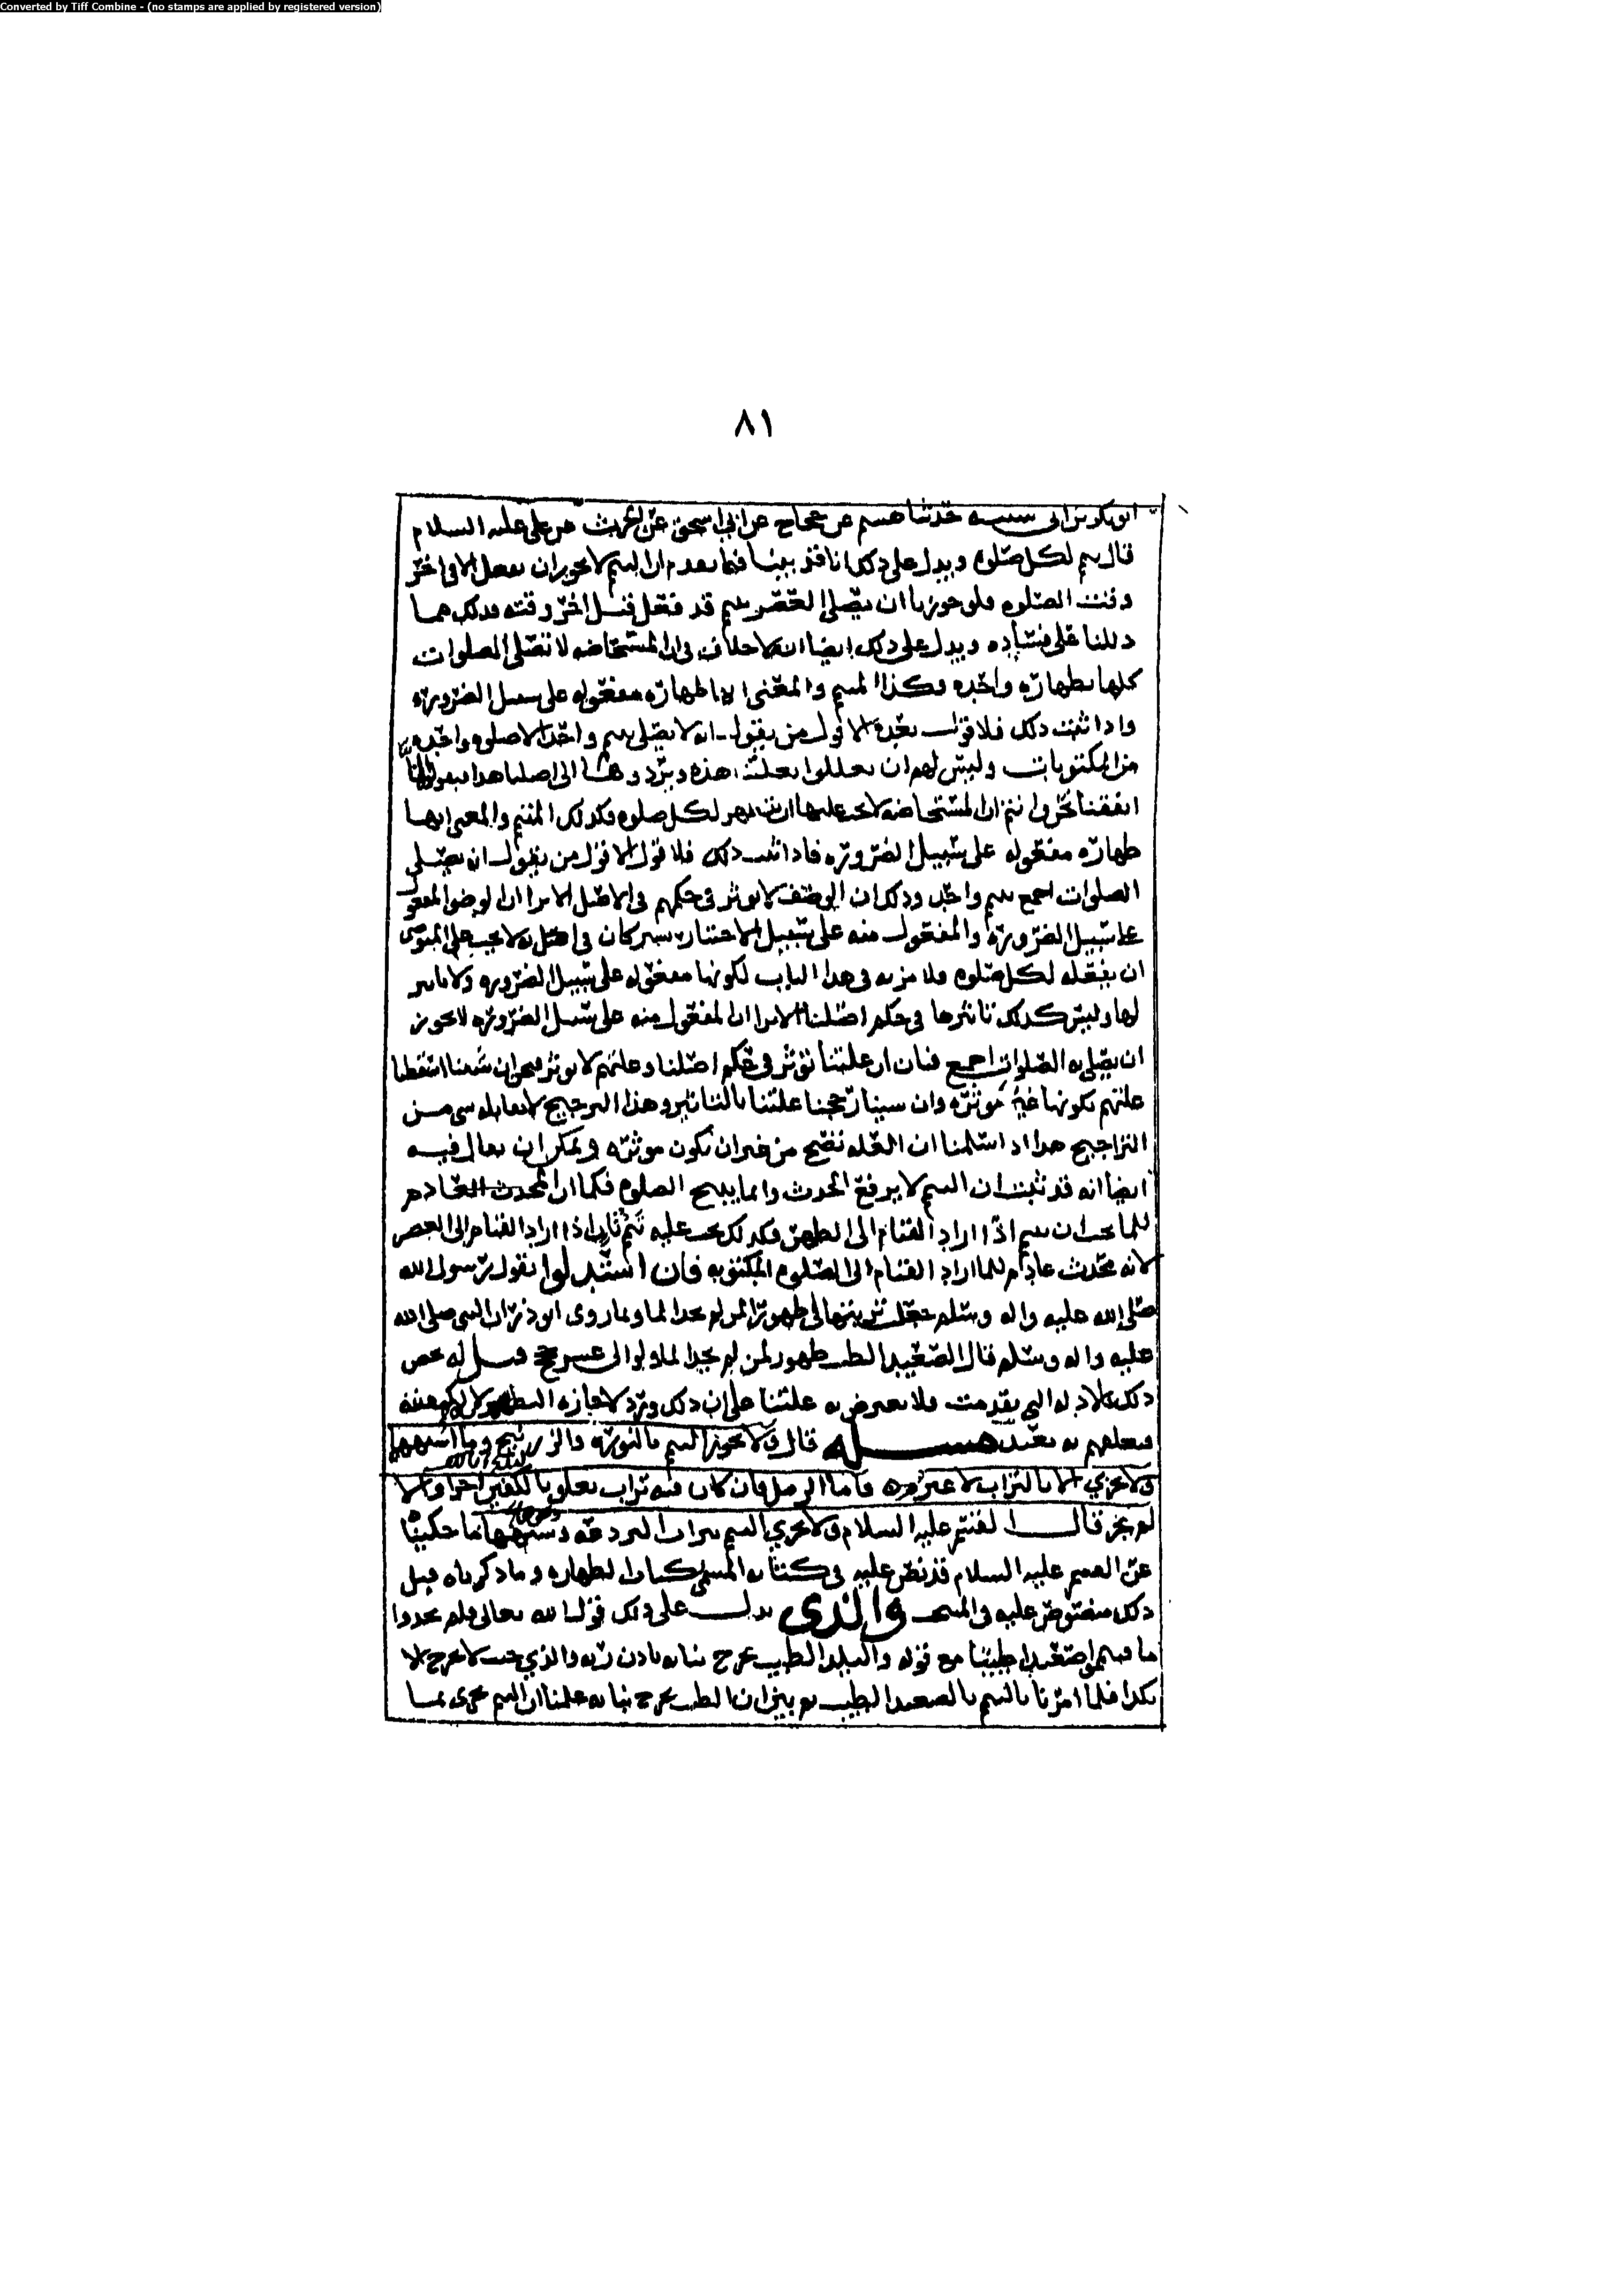 Converted by Tiff Combine - (no stamps are applied by registered version)
٨١
ابو بكر بن ابي شيبه حدثنا هشيم عن حجاج عن ابي اسحق عن الحرث عن علي عليه السلام
قال يتيمم لكل صلوه ويدل على ذلك انا قد بينا فيما تقدم ان التيمم لا يجوز ان يفعل الا في اخر
وقت الصلوه ولو جوزنا ان يصلي العصر بتيمم قد فعل قبل اخر وقته وذلك مما
دللنا على فساده ويدل على ذلك ايضا انه لا خلاف في ان المستحاضه لا تصلي الصلوات
كلها بطهاره واحده وكذا المتيمم والمعنى انها طهاره مفعوله على سبيل الضروره
واذا ثبت ذلك فلا قول بعده الا قول من يقول انه لا يصلي بتيمم واحد الا صلوه واحده
من المكتوبات وليس لهم ان يعللوا بعلتنا هذه ويردوها الى اصلنا هذا بقولهم انا
اتفقنا نحن وانتم ان المستحاضه لا يجب عليها ان تتطهر لكل صلوه فكذلك المتيمم والمعنى انها
طهاره مفعوله على سبيل الضروره فاذا ثبت ذلك فلا قول الا قول من يقول انه يصلي
الصلوات اجمع بتيمم واحد وذلك ان الوصف لا يوثر في حكمهم في الاصل الا ترا ان الوضو المفعول
على سبيل الضروره والمفعول منه على سبيل الاختيار سيان في اصل انه لا يجب على المتوضي
ان يفعله لكل صلوه فلا مزيه في هذا الباب لكونها مفعوله على سبيل الضروره ولا تاثير
لها وليس كذلك تاثيرها في حكم اصلنا الا ترا ان المفعول منه على سبيل الضروره لا يجوز
ان يصلي به الصلوات اجمع فبان ان علتنا توثر في حكم اصلنا وعلتهم لا توثر فنحن ان شئنا اسقطنا
علتهم بكونها غير موثره وان شينا رجحنا علتنا بالتاثير وهذا الترجيح لا يقابله شي من
التراجيح هذا اذا سلمنا ان العله تصح من غير ان تكون موثره ويمكن ان يقال فيه
ايضا انه قد ثبت ان التيمم لا يرفع الحدث وانما يبيح الصلوه فكما ان المحدث العادم
للما يجب ان يتيمم اذا اراد القيام الى الظهر فكذلك يجب عليه تيمم ثان اذا اراد القيام الى العصر
لانه محدث عادم للما اراد القيام الى الصلوه المكتوبه فان استدلوا بقول رسول الله
صلى الله عليه واله وسلم جعلت تربتها لي طهورا لمن لم يجد الما وبما روى ابو ذر ان النبي صلى الله
عليه واله وسلم قال الصعيد الطيب طهور لمن لم يجد الما ولو الى عشر حجج قيل له نخص
ذلك بالادله التي تقدمت ولا نعترض به علتنا على ان ذلك ورد لاجازه التطهر
مسله قال ولا يجوز التيمم بالنوره والزرنيخ وما اشبههما
ولا يجزي الا بالتراب لا غيره فاما الرمل فان كان فيه تراب يعلق بالكفين اجزا والا
لم يجز قال القسم عليه السلام ولا يجزي التيمم بتراب البردعه وشبهها ما حكينا
عن القسم عليه السلام قد نص عليه في كتابه المسمى كتاب الطهاره وما ذكرناه قبل
ذلك منصوص عليه في المنتخب والذي يدل على ذلك قول الله تعالى فلم تجدوا
ما فتيمموا صعيدا طيبا مع قوله والبلد الطيب يخرج نباته باذن ربه والذي خبث لا يخرج الا
نكدا فلما امرنا بالتيمم بالصعيد الطيب ثم بين ان الطيب يخرج نباته علمنا ان التيمم يجزي بما